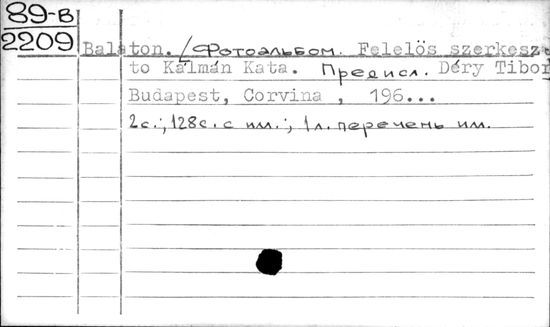 89-в
2209
Balaton. /Фотоальбом. Felelös szerkesz-
to Kálmán Kata. Предисл. Déry Tibor
Budapest, Corvina , 196...
2с.; 128с. с ил.; 1л. перечень ил.